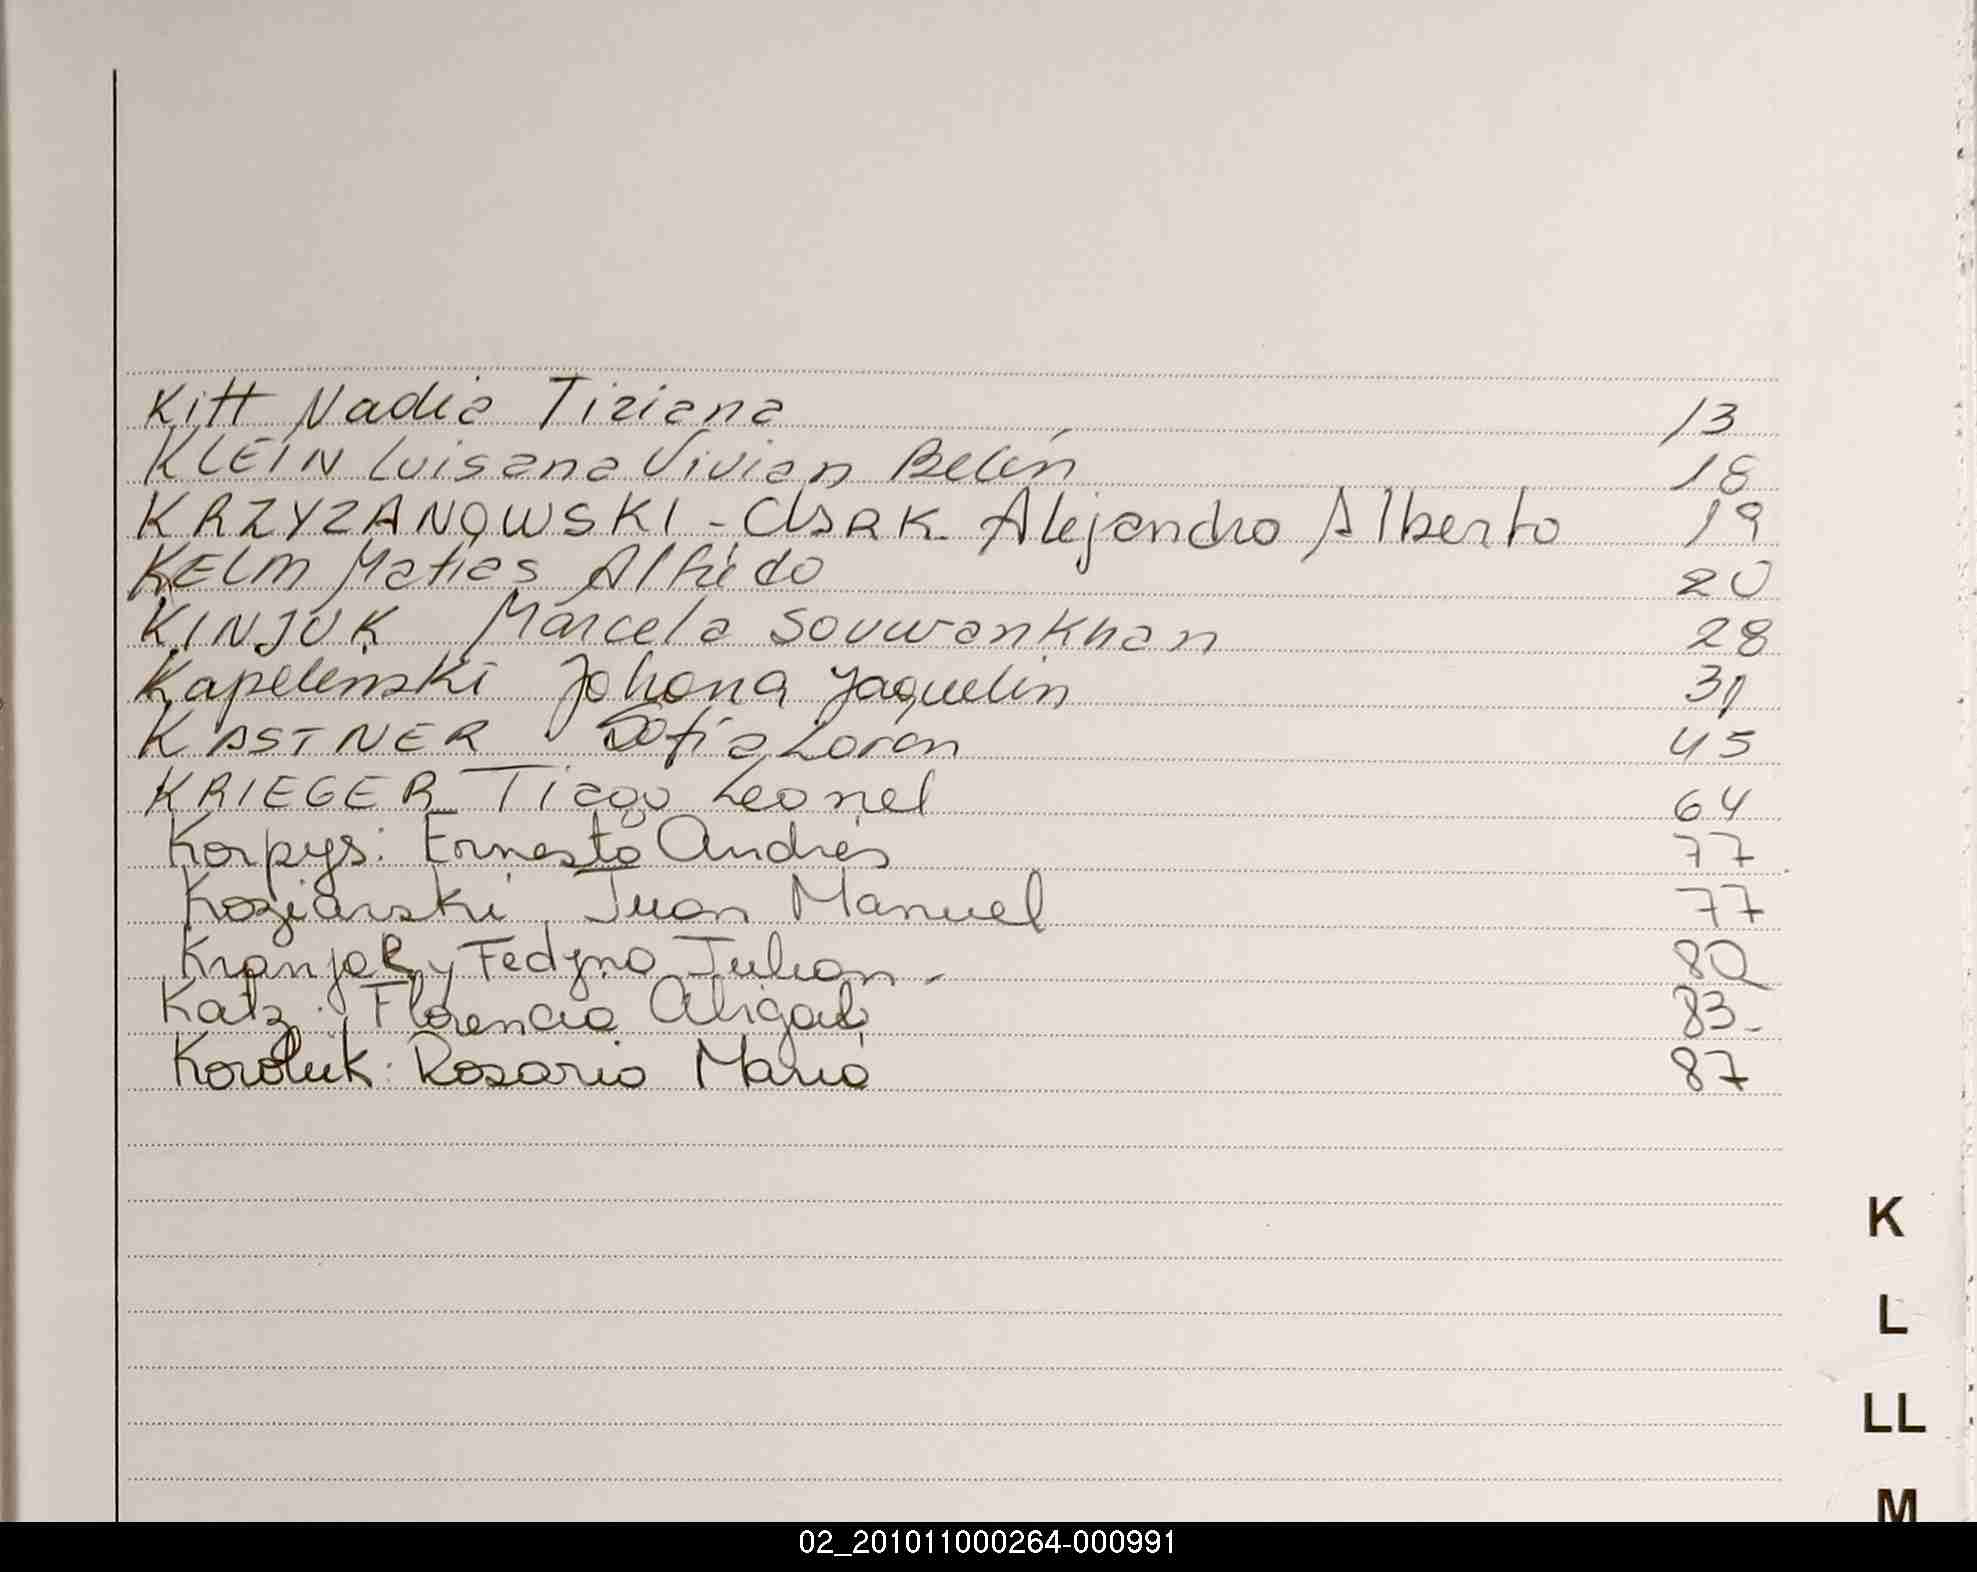 Kitt Nadia Tiziana 13
KLEIN Luisana Vivian Belén 18
KRZYZANOWSKI - Alejandro Alberto 19
KELM Matias Alfredo 20
KINJUK Marcela Souwankhan 28
Kapelenski Johona Jaquelin 31
KASTNER Sofia Loren 45
KRIEGER Tiago Leonel 64
Korpys: Ernesto Andrés 77
Koziarski Juan Manuel 77
y Fedyna Julian - 80
Katz: Florencia Abigail 83-
Koroluk: Rosario Maria 87
K
L
LL
M
02_201011000264-000991